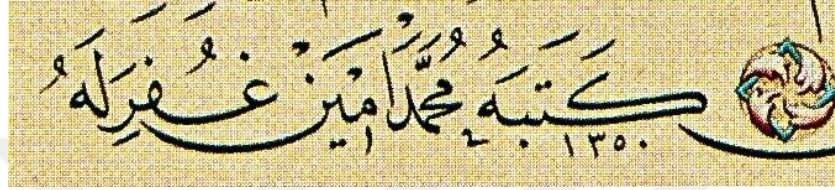 كَتَبَهُ مُحَمَّد اَمِين غُفِرَ لَهُ ١٣٥٠